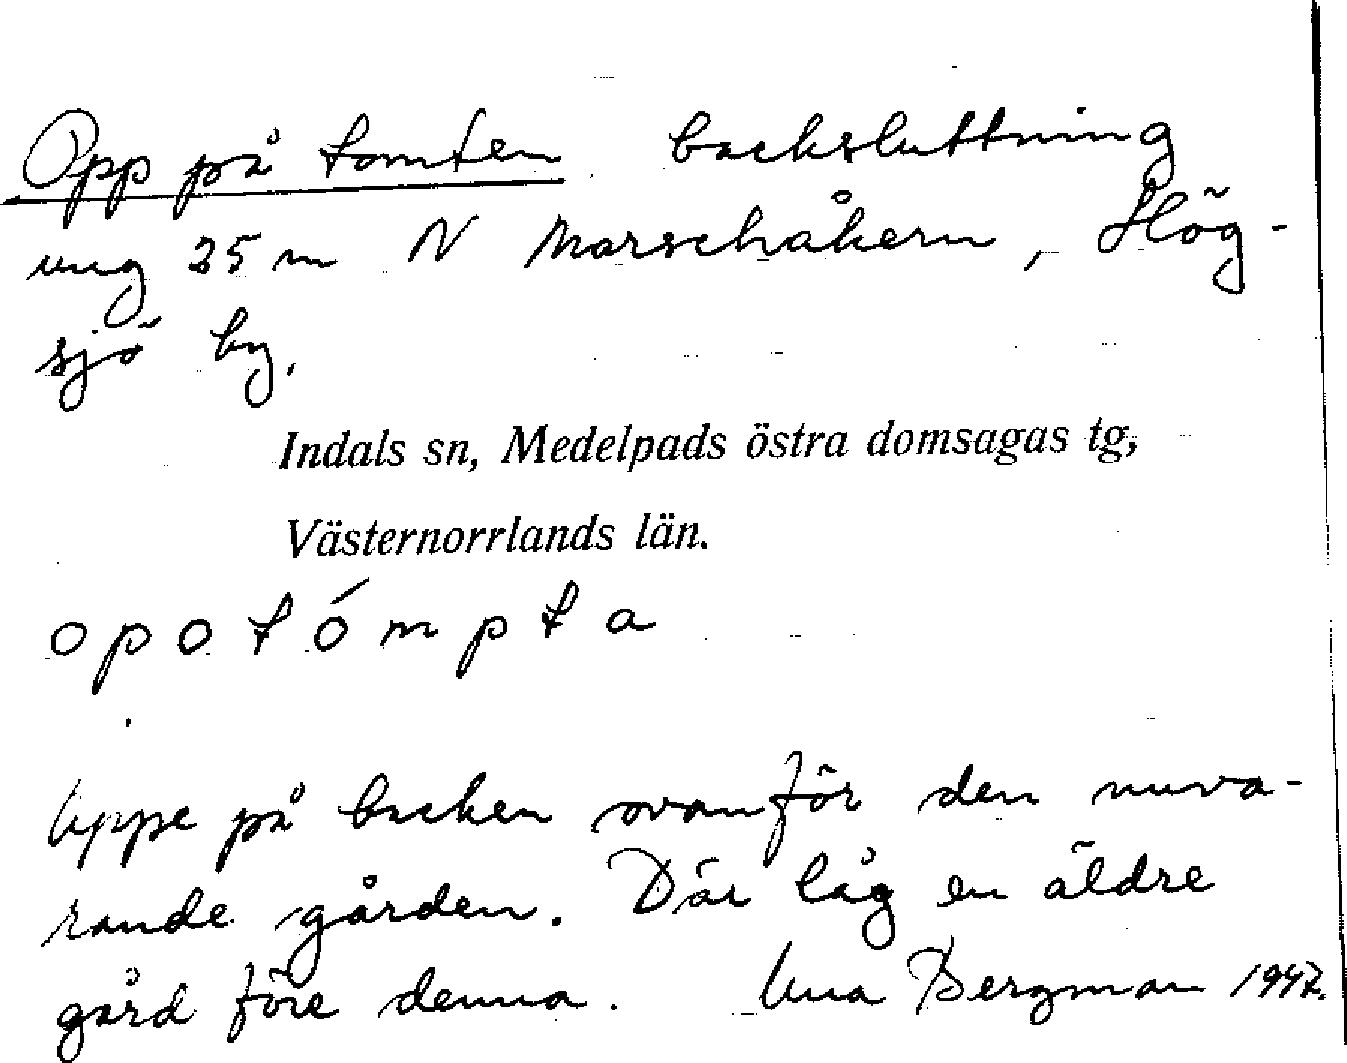 Opp på tomten backsluttning
ung 25 m N Marschåkern, Hög-
sjö by.
Indals sn, Medelpads östra domsagas tg,
Västernorrlands län.
opotómpta
Uppe på backen ovanför den nuva-
rande gården. Där låg en äldre
gård före denna. Una Bergman 1947.